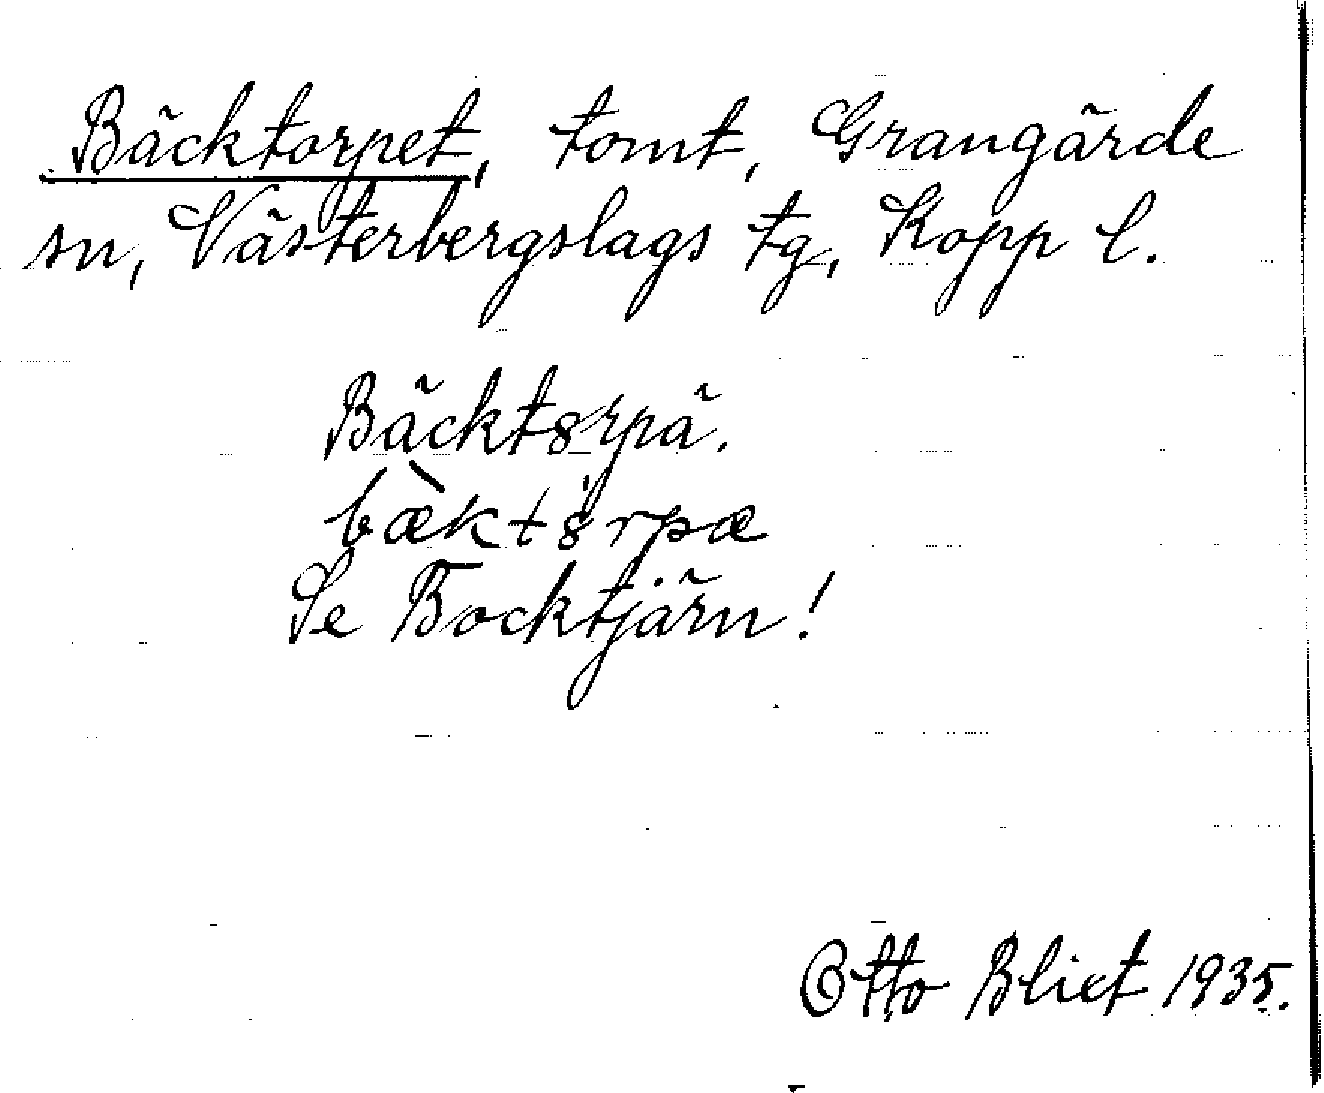 Bäcktorpet, tomt, Grangärde
sn, Västerbergslags tg, Kopp l.
Bäcktȣrpä.
bæ̀ktȣ̍rpæ
Se Bocktjärn!
Otto Blixt 1935.